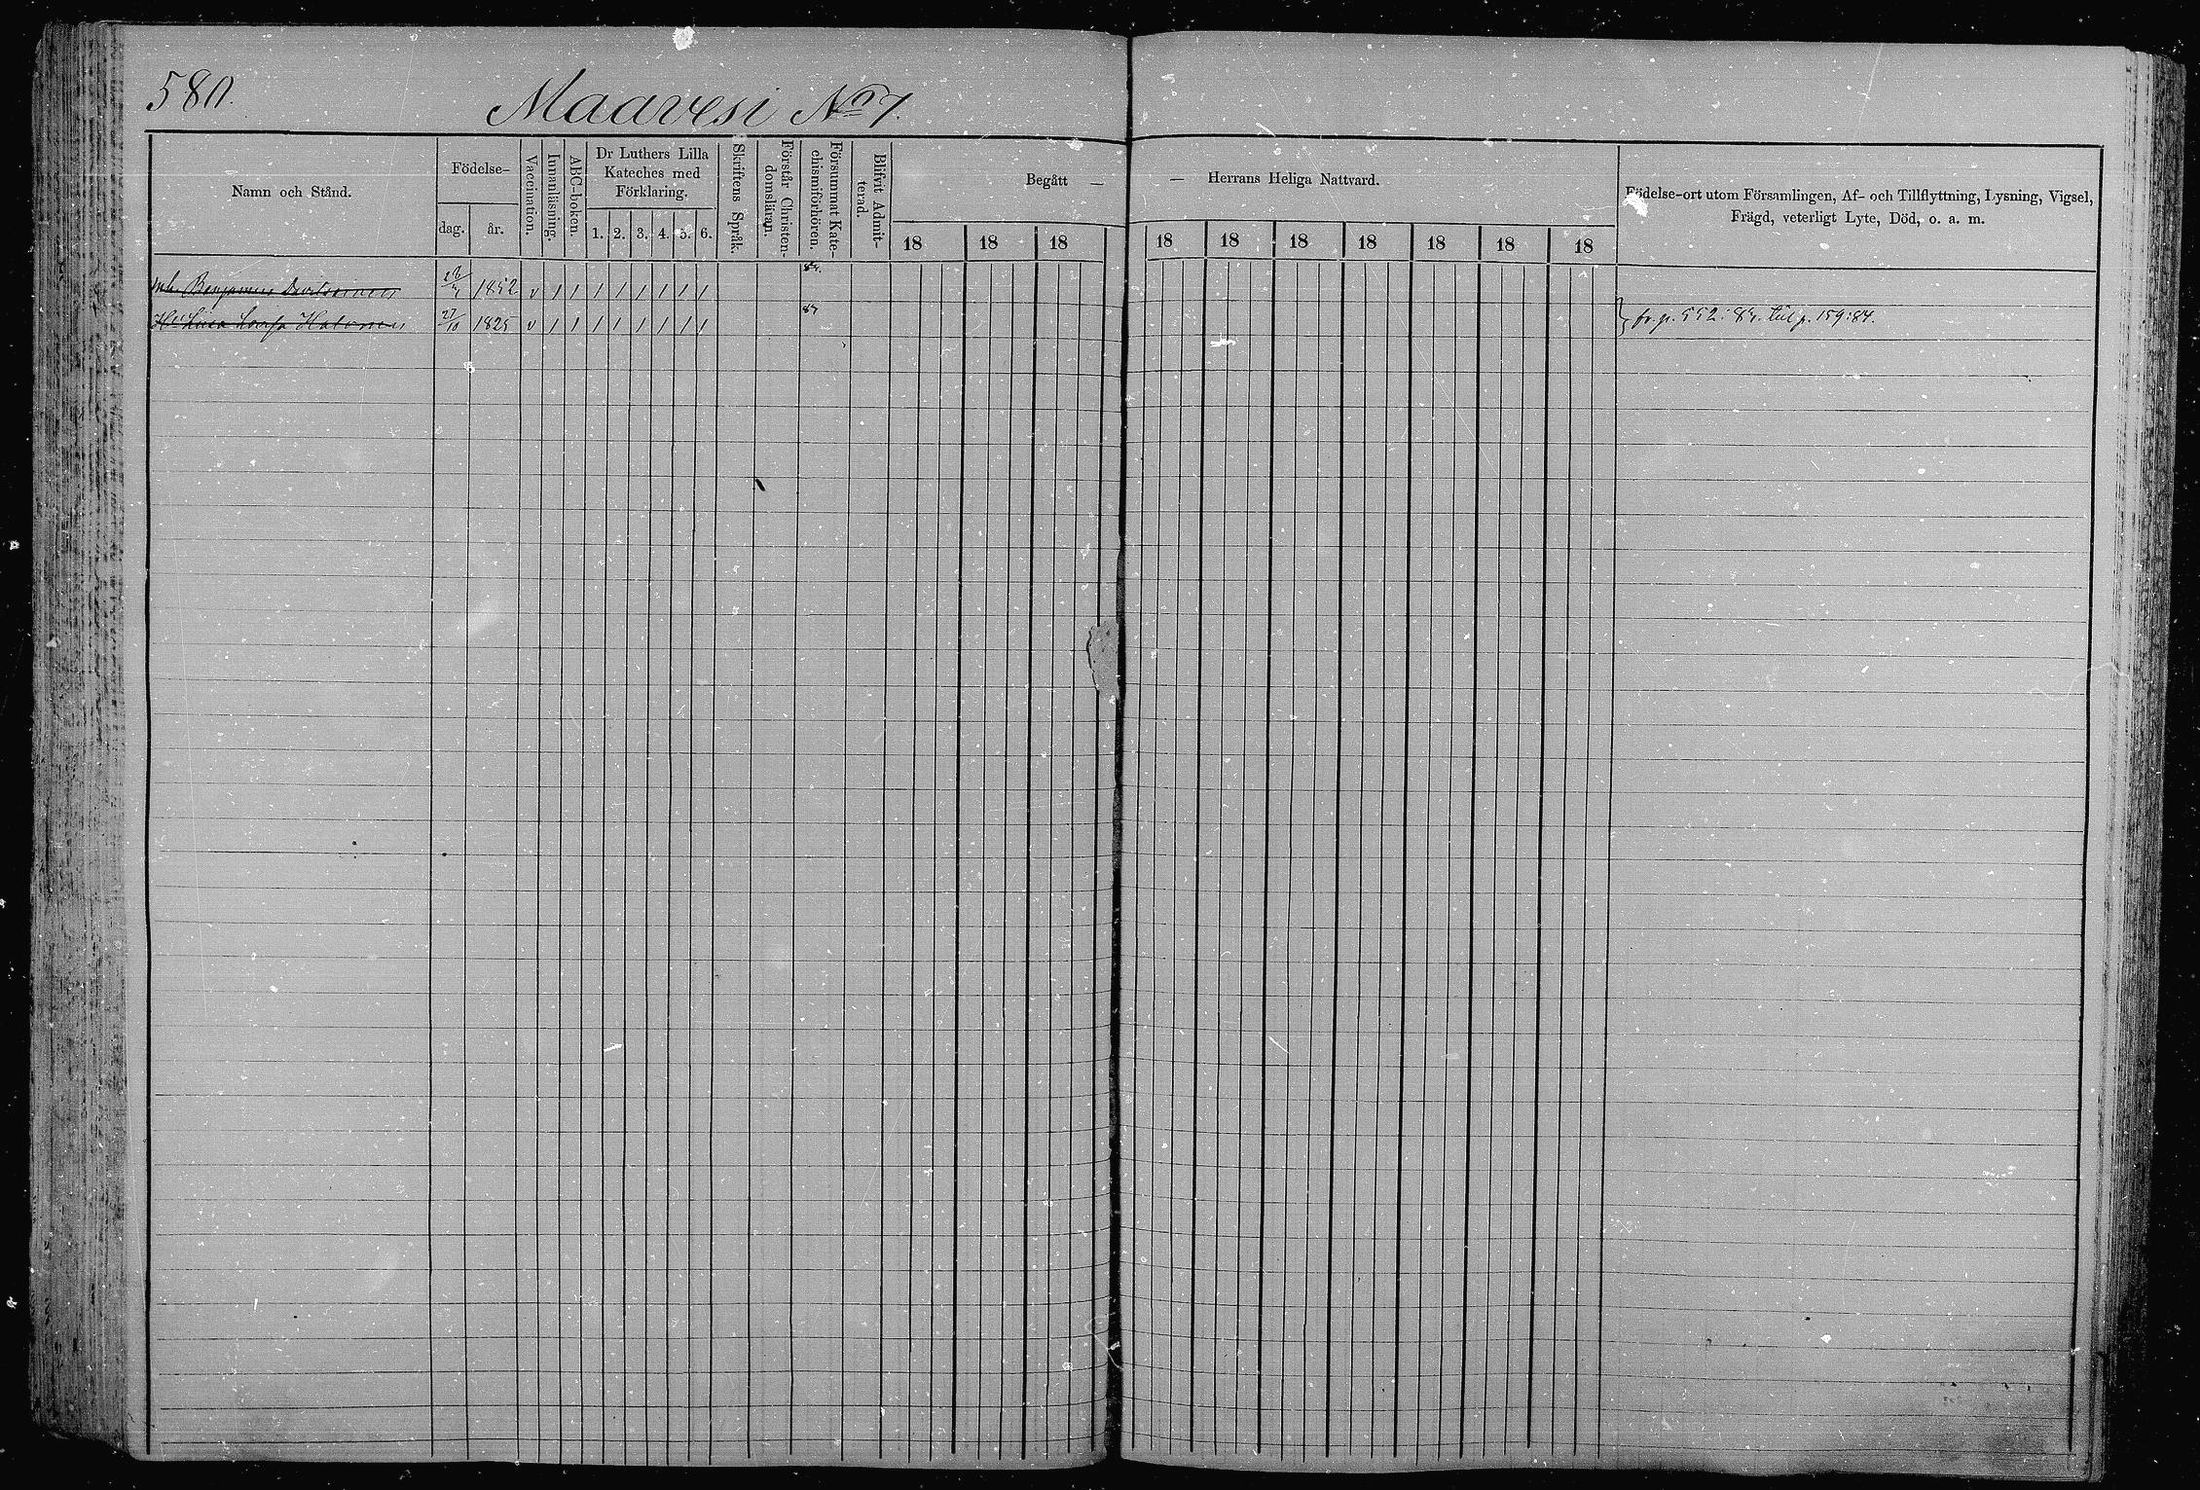 580.
Maavesi No 7.
Namn och Stånd.
Födelse-
dag.
år.
Vaccination.
Innanläsning.
ABC-boken.
Dr Luthers Lilla
Kateches med
Förklaring.
1. 2. 3. 4. 5. 6.
Skriftens Språk.
Förstår Christen-
domsläran.
Försummat Kate-
chismiförhören.
Blifvit Admit-
terad.
Begått —
— Herrans Heliga Nattvard.
18 18 18 18 18 18 18 18 18 18
Födelse-ort utom Församlingen, Af- och Tillflyttning, Lysning, Vigsel,
Frägd, veterligt Lyte, Död, o. a. m.
Inh. Benjamin 1852 v / / / / / / / /
Hu Lisa Lovisa Halonen 27/10 1825 v / / / / / / / /
fr. p. 552: 84. till p. 159:84.